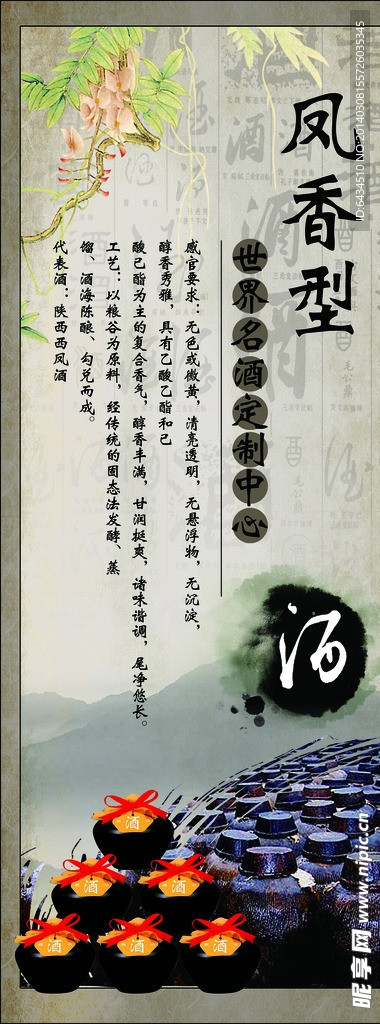 凤香型
世界名酒定制中心
感官要求：无色或微黄，清亮透明，无悬浮物，无沉淀，
醇香秀雅 具有乙酸乙酯和己
酸己酯为主的复合香气，醇香丰满，甘润挺爽，诸味谐调，尾净悠长。
工艺：以粮谷为原料，经传统的固态法发酵、蒸
馏、酒海陈酿、勾兑而成。
代表酒：陕西西凤酒
酒
酒
酒
酒
酒
酒
酒
ID:6434510 NO:20140308155726035345
昵享网 www.nipic.cn